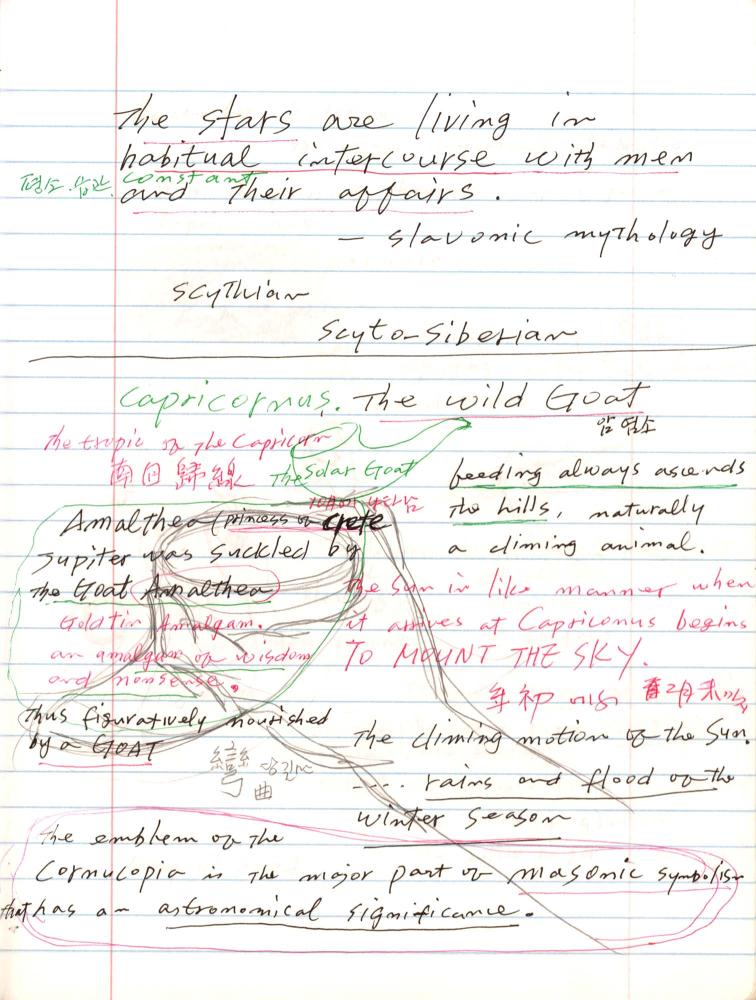 The stars are living in
habitual intercourse with men
평소. 습관. constant
and their affairs.
— slavonic mythology
Scythian
Scyto-Siberian
Capricornus. The wild Goat
암염소
the tropic of the Capricorn
南回歸線
The Solar Goat
feeding always ascends
the hills, naturally
a climing animal.
Amalthea (princess of Crete
Jupiter was suckled by
the Goat Amalthea
Gold tin Amalgam.
an amalgam of wisdom
and nonsense.
Thus figuratively nourished
by a GOAT
彎曲
the Sun in like manner when
it arrives at Capricornus begins
TO MOUNT THE SKY.
年初
The climing motion of the Sun.
.... rains and flood of the
winter season
the emblem of the
Cornucopia is the major part of masonic symbolism
that has an astronomical significance.